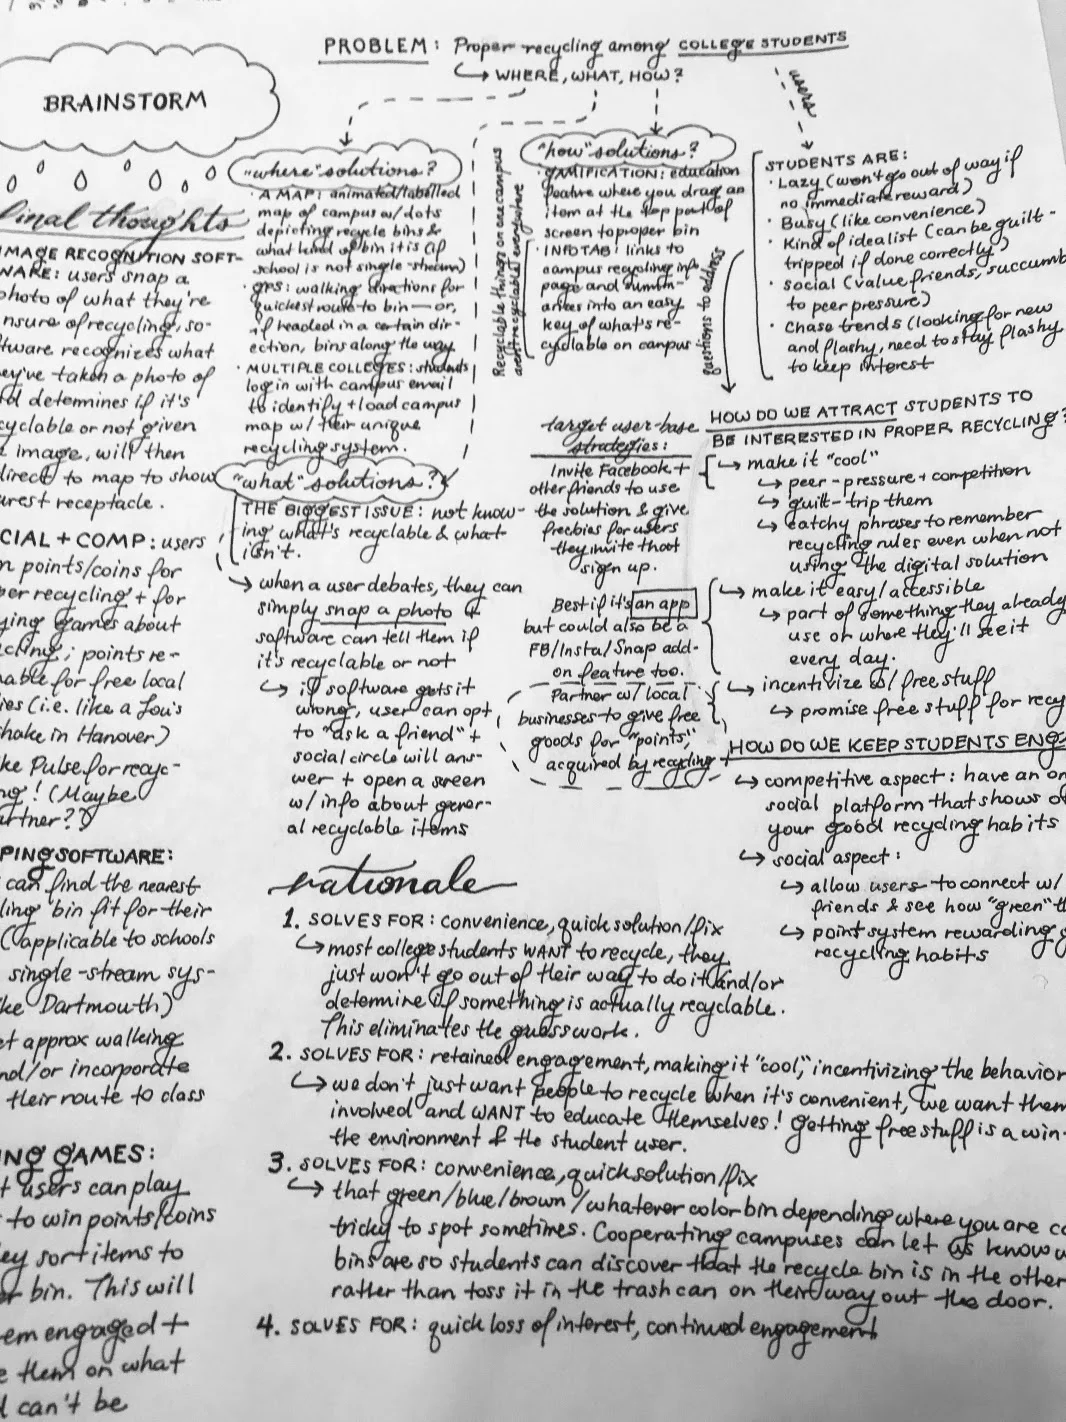 PROBLEM: Proper recycling among COLLEGE STUDENTS
↳ WHERE, WHAT, HOW?
users
BRAINSTORM
final thoughts
IMAGE RECOGNITION SOFT-
WARE: users snap a
photo of what they're
nsure of recycling, so-
tware recognizes what
ey've taken a photo of
d determines if it's
cyclable or not given
e image, will then
direct to map to show
arest receptacle.
CIAL + COMP: users
n points/coins for
per recycling + for
ying games about
cling; points re-
mable for free local
ies (i.e. like a Lou's
shake in Hanover)
ke Pulse for recyc-
ng! (Maybe
artner??)
PING SOFTWARE:
can find the nearest
ling bin fit for their
(applicable to schools
single-stream sys-
ke Dartmouth)
et approx walking
nd/or incorporate
their route to class
NG GAMES:
t users can play
to win points/coins
ey sort items to
or bin. This will
em engaged +
e them on what
d can't be
"where" solutions?
· A MAP: animated/labelled
map of campus w/ dots
depicting recycle bins &
what kind of bin it is (if
school is not single-stream)
· GPS: walking directions for
quickest route to bin — or,
if headed in a certain dir-
ection, bins along the way
· MULTIPLE COLLEGES: students
log in with campus email
to identify + load campus
map w/ their unique
recycling system.
"what" solutions?
THE BIGGEST ISSUE: not know-
ing what's recyclable & what
isn't.
↳ when a user debates, they can
simply snap a photo +
software can tell them if
it's recyclable or not
↳ if software gets it
wrong, user can opt
to "ask a friend" +
social circle will ans-
wer + open a screen
w/ info about gener-
al recyclable items
Recyclable things on one campus
aren't recyclable everywhere
"how" solutions?
· GAMIFICATION: education
feature where you drag an
item at the top part of
screen to proper bin
· INFO TAB: links to
campus recycling info
page and summ-
arizes into an easy
key of what's re-
cyclable on campus
questions to address
STUDENTS ARE:
· Lazy (won't go out of way if
no immediate reward)
· Busy (like convenience)
· Kind of idealist (can be guilt-
tripped if done correctly)
· social (value friends, succumb
to peer pressure)
· Chase trends (looking for new
and flashy, need to stay flashy
to keep interest
target user-base
strategies:
Invite Facebook +
other friends to use
the solution & give
freebies for users
they invite that
sign up.
Best if it's an app
but could also be a
FB/Insta/Snap add-
on feature too.
Partner w/ local
businesses to give free
goods for "points,"
acquired by recycling
HOW DO WE ATTRACT STUDENTS TO
BE INTERESTED IN PROPER RECYCLING?
↳ make it "cool"
↳ peer-pressure + competition
↳ guilt-trip them
↳ catchy phrases to remember
recycling rules even when not
using the digital solution
↳ make it easy/accessible
↳ part of something they already
use or where they'll see it
every day.
↳ incentivize w/ free stuff
↳ promise free stuff for recy
HOW DO WE KEEP STUDENTS ENG
↳ competitive aspect: have an on
social platform that shows of
your good recycling habits
↳ social aspect:
↳ allow users to connect w/
friends & see how "green" th
↳ point system rewarding g
recycling habits
rationale
1. SOLVES FOR: convenience, quick solution/fix
↳ most college students WANT to recycle, they
just won't go out of their way to do it and/or
determine if something is actually recyclable.
This eliminates the guesswork.
2. SOLVES FOR: retained engagement, making it "cool," incentivizing the behavior
↳ we don't just want people to recycle when it's convenient, we want them
involved and WANT to educate themselves! Getting free stuff is a win-
the environment & the student user.
3. SOLVES FOR: convenience, quick solution/fix
↳ that green/blue/brown/whatever color bin depending where you are ca
tricky to spot sometimes. Cooperating campuses can let us know w
bins are so students can discover that the recycle bin is in the other
rather than toss it in the trash can on their way out the door.
4. SOLVES FOR: quick loss of interest, continued engagement